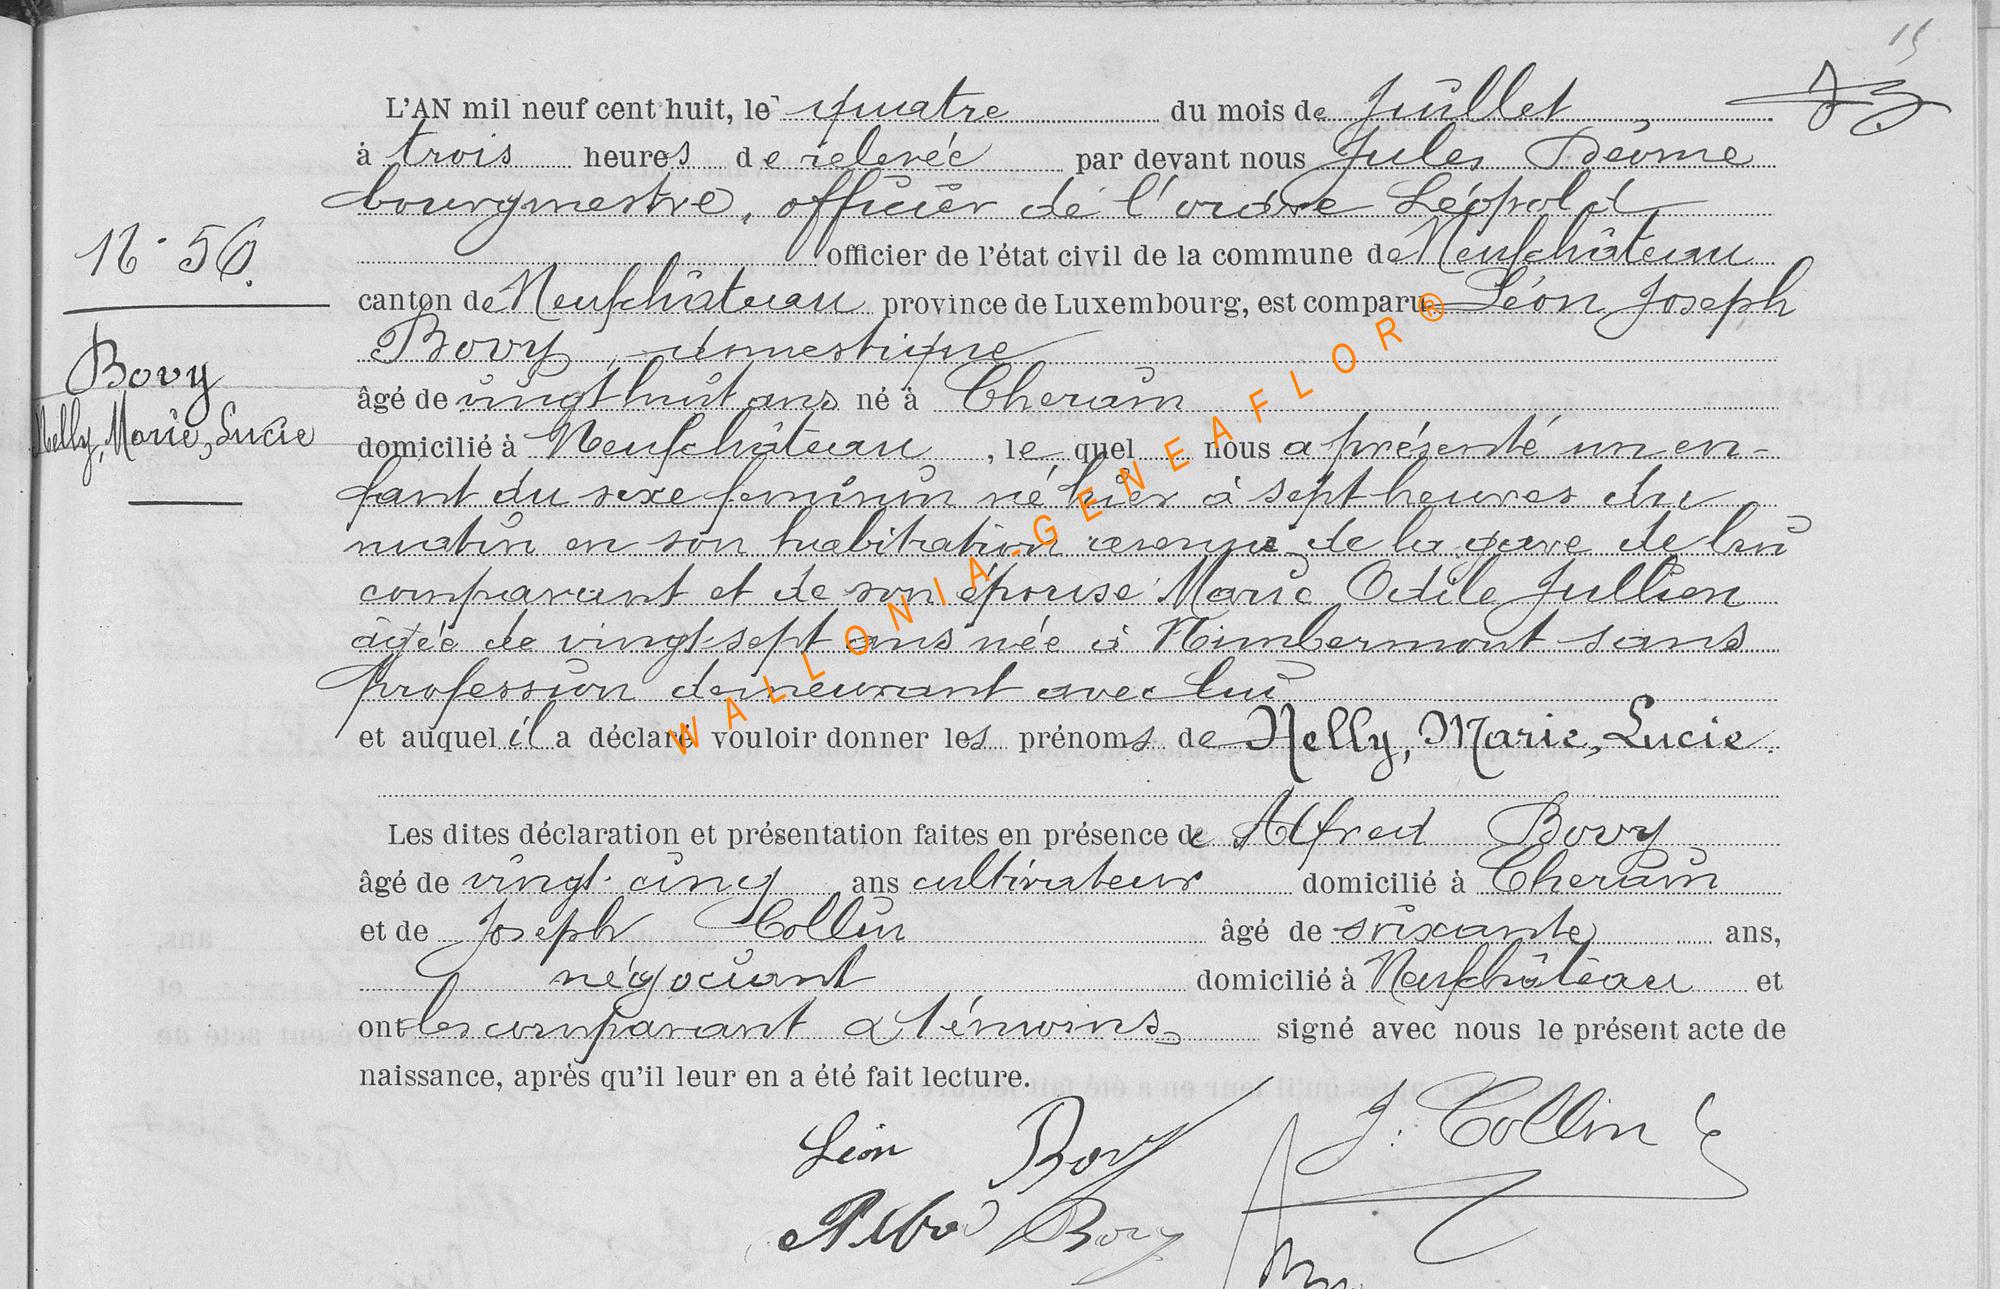 15
L'AN mil neuf cent huit, le quatre du mois de Juillet
à trois heures de relevée par devant nous Jules
bourgmestre, officier de l'ordre Léopold
N° 56.
officier de l'état civil de la commune de Neufchâteau
canton de Neufchâteau province de Luxembourg, est comparu Léon Joseph
Bovy
Bovy, domestique
Nelly, Marie, Lucie
âgé de vingt huit ans né à Cherain
domicilié à Neufchâteau, le quel nous a présenté un en-
fant du sexe feminin né hier à sept heures du
matin en son habitation avenue de la gare de lui
comparant et de son épouse Marie Odile Jullien
âgée de vingt-sept ans née à Nimbermont sans
profession demeurant avec lui
et auquel il a déclaré vouloir donner les prénoms de Nelly, Marie, Lucie.
Les dites déclaration et présentation faites en présence de Alfred Bovy
âgé de vingt-cinq ans cultivateur domicilié à Cherain
et de Joseph Collin âgé de soixante ans,
négociant domicilié à Neufchâteau et
ont les comparant & témoins signé avec nous le présent acte de
naissance, après qu'il leur en a été fait lecture.
Léon Bovy J. Collin
Alfred Bovy
WALLONIA-GENEAFLOR®